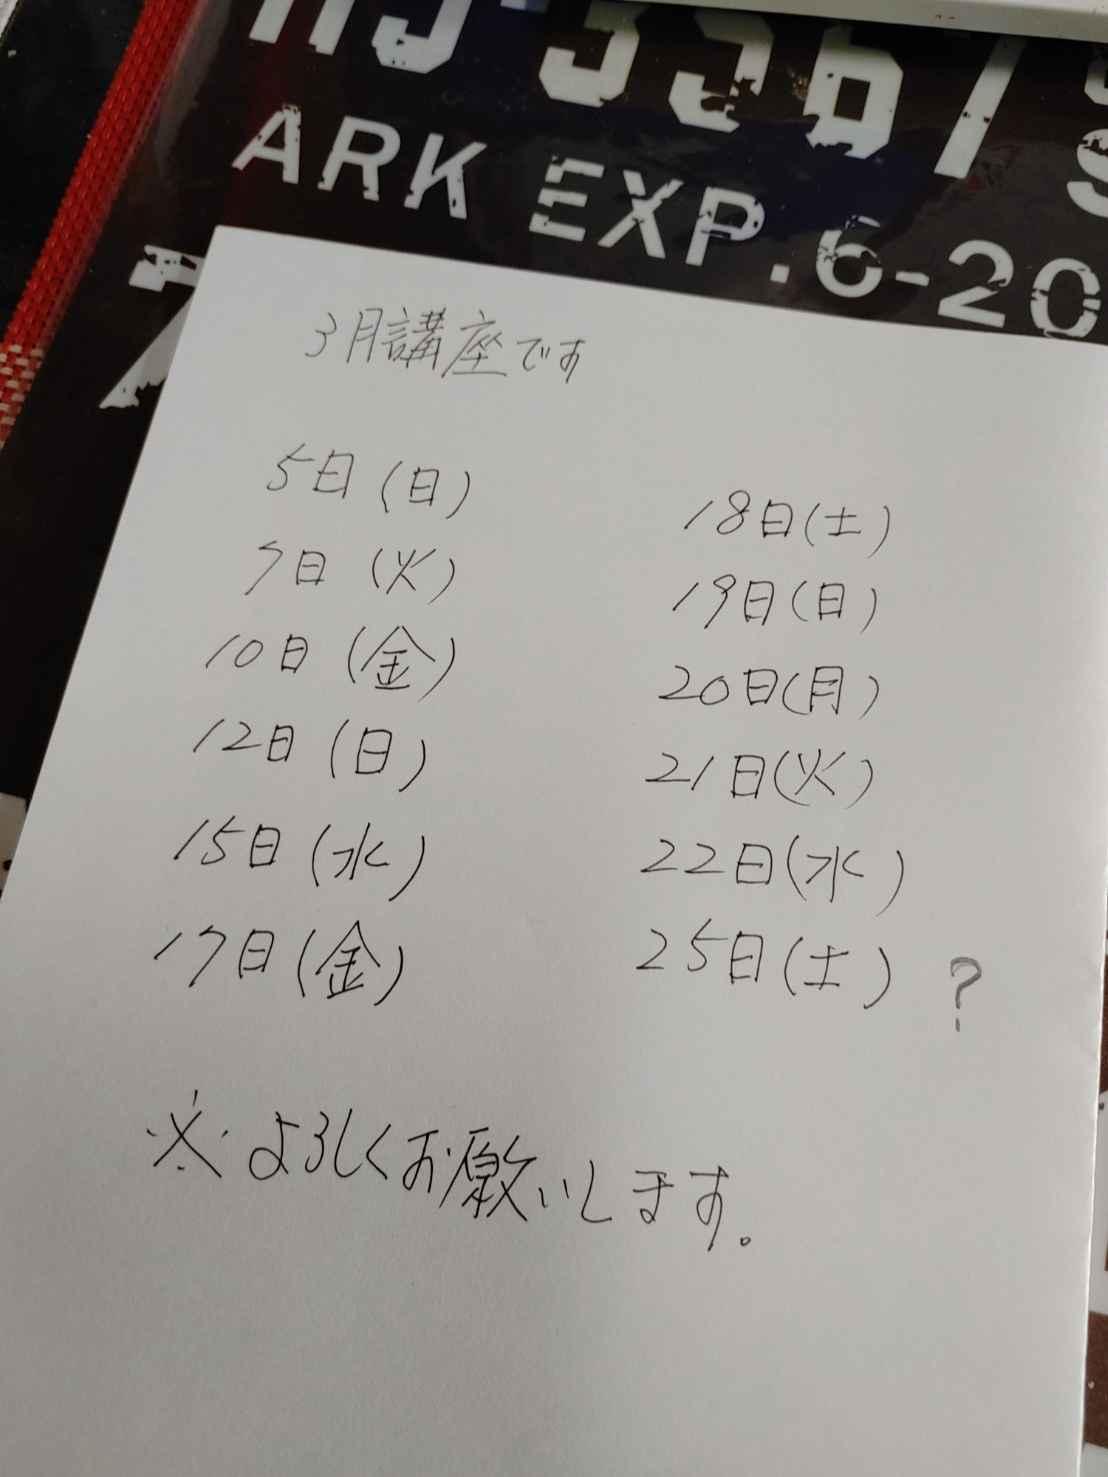 ARK EXP.6-20
3月講座です
5日(日)
7日(火)
10日(金)
12日(日)
15日(水)
17日(金)
18日(土)
19日(日)
20日(月)
21日(火)
22日(水)
25日(土)?
※よろしくお願いします。